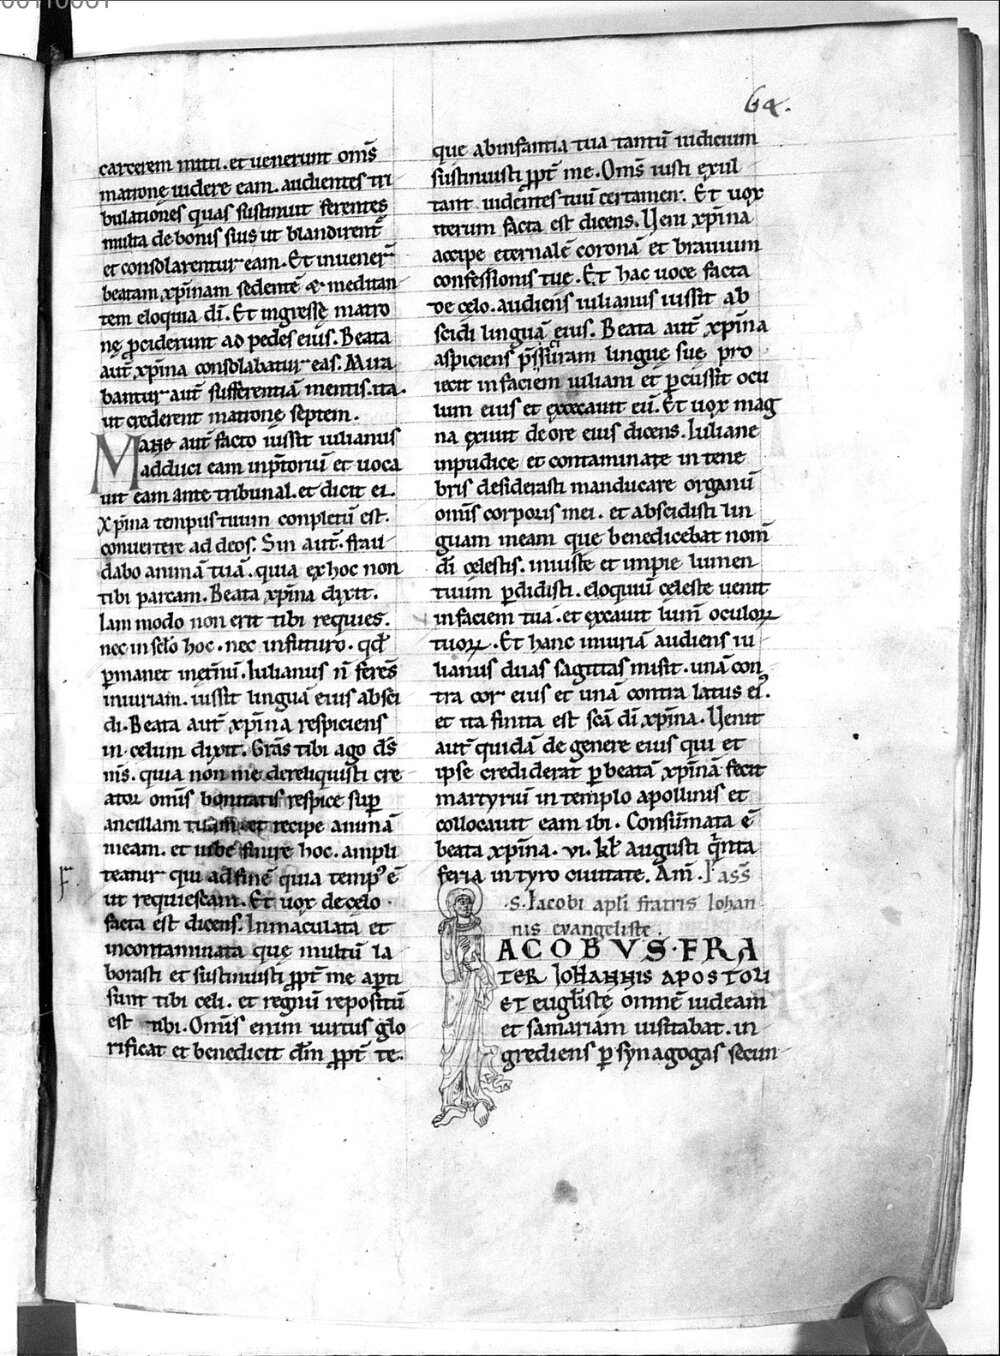 64.
carcerem mitti. et uenerunt om̄s
matronę uidere eam. audientes tri
bulationes quas sustinuit ferentes
multa de bonis suis ut blandirent̄
et consolarentur eam. Et inuener̄
beatam xp̄inam sedentē & meditan
tem eloquia dī. Et ingressę matro
nę ꝓciderunt ad pedes eius. Beata
aut̄ xp̄ina consolabatur eas. Mira
bantur aut̄ sufferentiā mentis. ita
ut crederent matronę septem.
Mane aut̄ facto iussit iulianus
adduci eam inp̄toriū et uoca
uit eam ante tribunal. et dicit ei.
Xp̄ina tempus tuum conpletū est.
conuertere ad deos. Sin aut̄. frau
dabo animā tuā. quia ex hoc non
tibi parcam. Beata xp̄ina dixit.
Iam modo non erit tibi requies.
nec in sclo hoc. nec in futuro. qd̄
ꝑmanet inet̄nū. Iulianus n̄ ferēs
iniuriam. iussit linguā eius absci
di. Beata aut̄ xp̄ina respiciens
in celum dixit. Grās tibi ago dn̄s
m̄s. quia non me dereliquisti cre
ator om̄is bonitatis respice sup̄
ancillam tuam et recipe animā
meam. et iube finire hoc. ampli
teatur qui ad finē quia temp᾽ ē
ut requiescam. Et uox de cęlo
facta est dicens. Inmaculata et
incontaminata que multū la
borasti et sustinuisti ꝓpt̄ me apti
sunt tibi celi. et regnū repositū
est tibi. Om̄is enim uirtus glo
rificat et benedicit dm̄ ꝓpt̄ te.
que ab infantia tua tantū iudicium
sustinuisti ꝓpt̄ me. Om̄s iusti exul
tant uidentes tuū certamen. Et uox
iterum facta est dicens. Ueni xp̄ina
accipe eternalē coronā et brauium
confessionis tue. Et hac uoce facta
de celo. audiens iulianus iussit ab
scidi linguā eius. Beata aut̄ xp̄ina
aspiciens p̄ssuram lingue sue pro
iecit in faciem iuliani et ꝑcussit ocu
lum eius et excecauit eū. Et uox mag
na exiuit de ore eius dicens. Iuliane
inpudice et contaminate in tene
bris desiderasti manducare organū
om̄is corporis mei. et abscidisti lin
guam meam que benedicebat nom̄
dī cęlestis. iniuste et impie lumen
tuum ꝑdidisti. eloquiū cęleste uenit
in faciem tuā. et excauit lum̄ oculoꝝ
tuoꝝ. Et hanc iniuriā audiens iu
lianus duas sagittas misit. unā con
tra cor eius et unā contra latus ei᾽.
et ita finita est sc̄a dī xp̄ina. Uenit
aut̄ quidā de genere eius qui et
ipse crediderat ꝑ beatā xp̄inā fecit
martyriū in templo apollinis et
collocauit eam ibi. Consūmata ē
beata xp̄ina. vi. kl̄ augusti q̄inta
feria in tyro ciuitate. Am̄. Pass̄
.S. Iacobi apli fratris Iohan
nis evangeliste.
ACOBVS. FRA
TER IOHANNIS APOSTOLI
ET eugl̄istę omnē iudeam
et samariam uisitabat. in
grediens ꝑ synagogas secun
F.